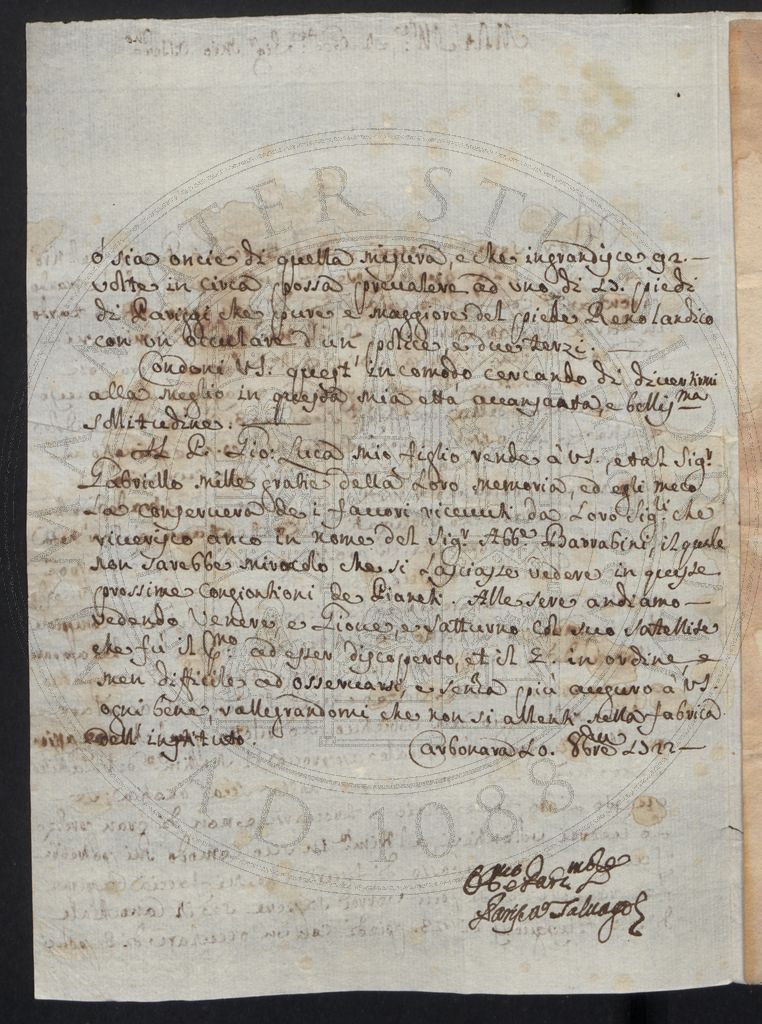 ò sia oncie di quella misura, e che ingrandisce 92. —
volte in circa possa prevalere ad uno di 23. piedi
di Pariggi che pure è maggiore del piede Renolandico
con un occulare d'un police e due terzi. —
Condoni VS. quest' incomodo cercando di divertirmi
alla meglio in questa mia età avanzata, e bellis.ma
sollitudine. —
Al P. Gio: Luca mio figlio rende à VS., et al Sig.r
Gabriello mille gratie della Loro memoria, ed egli meco
La conserverà de i favori ricevuti da Loro Sig.ri che
riverisco anco in nome del Sig.r Abb.e Barrabini, il quale
non sarebbe miracolo che si Lasciasse vedere in queste
prossime Congiontioni de Pianeti. Alle sere andiamo —
vedendo Venere e Giove, e satturno col suo satellite
che fù il P.mo ad esser discoperto, et il 4. in ordine e
men difficile ad osservarsi, e senza più auguro à VS.
ogni bene, rallegrandomi che non si allenti nella fabrica
dell' instituto. Carbonara 20. 8bre 1722 —
Obb.mo
Paris M.a Salvago
ALMA MATER STUDIORUM
A.D. 1088